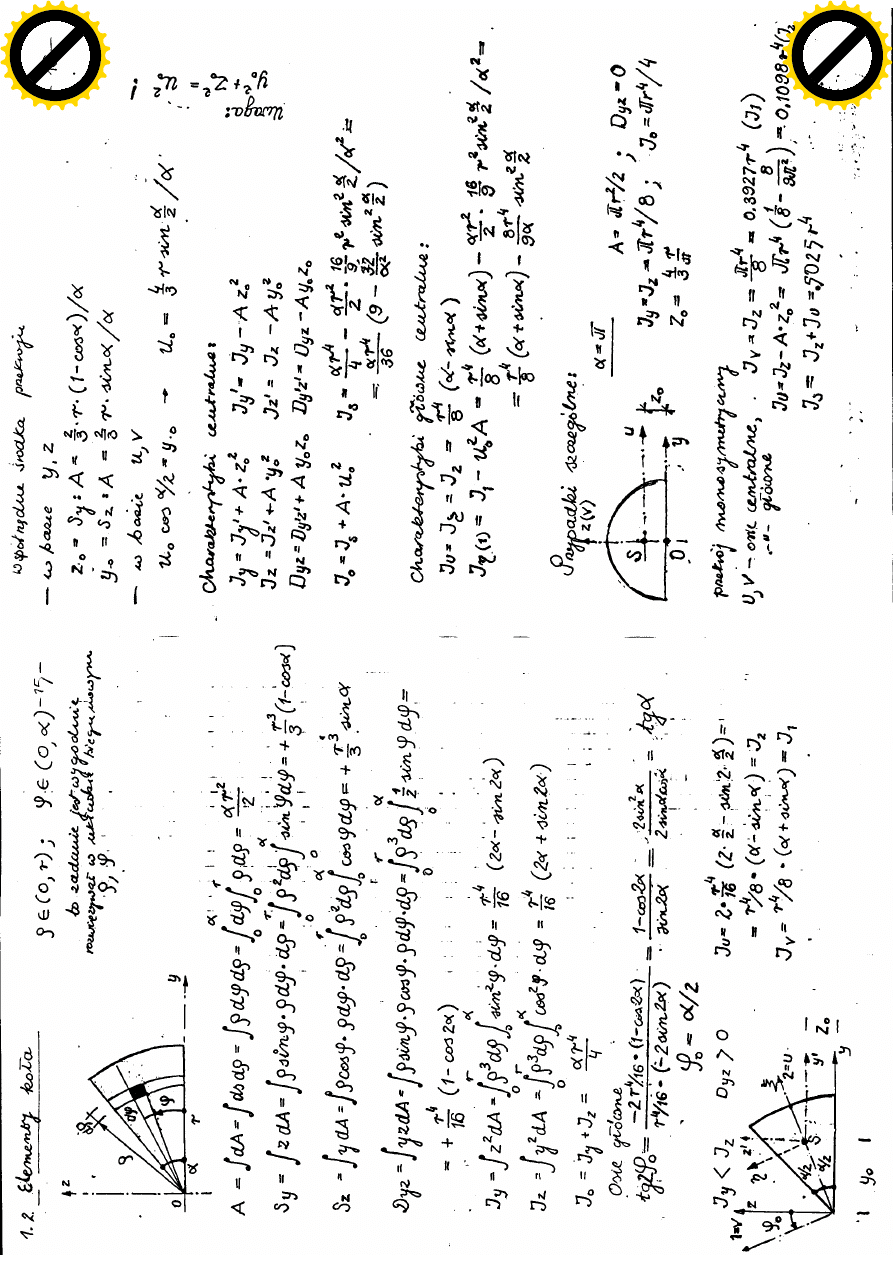 1.2. Elementy koła
ρ∈(0,r); φ∈(0,α) -15,-
to zadanie jest wygodnie
rozwiązywać w układzie biegunowym
ρ, φ
z
ρ
dφ
φ
α
r
0
y
A = ∫dA = ∫ds dρ = ∫ρ dφ dρ = ∫₀^α dφ ∫₀^r ρ dρ = αr²/2
Sy = ∫z dA = ∫ρ sinφ · ρdφ · dρ = ∫₀^r ρ² dρ ∫₀^α sinφ dφ = + r³/3 (1-cosα)
Sz = ∫y dA = ∫ρ cosφ · ρdφ · dρ = ∫₀^r ρ² dρ ∫₀^α cosφ dφ = + r³/3 sinα
Dyz = ∫yz dA = ∫ρ sinφ · ρ cosφ · ρ dφ · dρ = ∫₀^r ρ³ dρ ∫₀^α ½ sin φ dφ =
= + r⁴/16 (1-cos2α)
Jy = ∫z² dA = ∫₀^r ρ³ dρ ∫₀^α sin²φ · dφ = r⁴/16 (2α - sin2α)
Jz = ∫y² dA = ∫₀^r ρ³ dρ ∫₀^α cos²φ · dφ = r⁴/16 (2α + sin2α)
J₀ = Jy + Jz = αr⁴/4
Osie główne
tg2φ₀ = -2r⁴/16 · (1-cos2α) / r⁴/16 · (-2sin2α) = 1-cos2α / sin2α = 2sin²α / 2sinαcosα = tgα
φ₀ = α/2
Jy < Jz Dyz > 0
1=V
z
φ₀
z'
η
α/2
α/2
S
ξ
2=U
y'
Z₀
y
y₀
Ju = 2·r⁴/16 (2·α/2 - sin2·α/2) =
= r⁴/8 · (α-sinα) = J₂
Jv = r⁴/8 · (α+sinα) = J₁
Współrzędne środka przekroju
— w bazie y, z
z₀ = Sy : A = 2/3 · r · (1-cosα)/α
y₀ = Sz : A = 2/3 r · sinα/α
— w bazie u, v
u₀ cos α/2 = y₀ → u₀ = 4/3 r sin α/2 /α
Uwaga:
y₀² + z₀² = u₀² !
Charakterystyki centralne:
Jy = Jy' + A·z₀² Jy' = Jy - Az₀²
Jz = Jz' + A·y₀² Jz' = Jz - Ay₀²
Dyz = Dy'z' + A y₀z₀ Dy'z' = Dyz - Ay₀z₀
J₀ = Js + A·u₀² Js = αr⁴/4 - αr²/2 · 16/9 r² sin² α/2 /α² =
= αr⁴/36 (9 - 32/α² sin² α/2)
Charakterystyki główne centralne:
Ju = Jξ = J₂ = r⁴/8 (α-sinα)
Jη(1) = J₁ - u₀²A = r⁴/8 (α+sinα) - αr²/2 · 16/9 r² sin² α/2 /α² =
= r⁴/8 (α+sinα) - 8r⁴/9α sin² α/2
Przypadki szczególne: α=π
z(v)
S
u
z₀
0
y
A = πr²/2 ; Dyz = 0
Jy = Jz = πr⁴/8 ; J₀ = πr⁴/4
z₀ = 4/3 r/π
przekrój monosymetryczny
u, v - osie centralne, Jv = Jz = πr⁴/8 = 0.3927r⁴ (J₁)
-"- główne Ju = Jz - A·z₀² = πr⁴ (1/8 - 8/9π²) = 0.1098r⁴ (J₂
Js = Jz + Ju = .5025r⁴